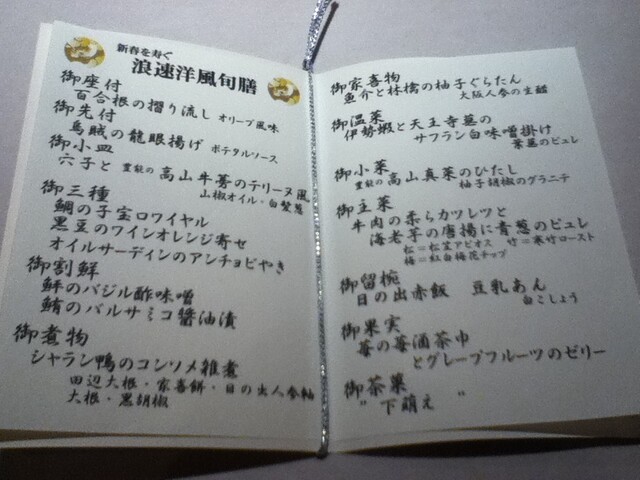 新春を寿ぐ
浪速洋風旬膳
御座付
百合根の摺り流し オリーブ風味
御先付
烏賊の龍眼揚げ ポテタルソース
御小皿
穴子と 豊能の 高山牛蒡のテリーヌ風
山椒オイル・白髪葱
御三種
鯛の子宝ロワイヤル
黒豆のワインオレンジ寄せ
オイルサーディンのアンチョビやき
御割鮮
鮃のバジル酢味噌
鮪のバルサミコ醤油漬
御煮物
シャラン鴨のコンソメ雑煮
田辺大根・家喜餅・日の出人参軸
大根・黒胡椒
御家喜物
魚介と林檎の柚子ぐらたん
大阪人参の生醋
御温菜
伊勢蝦と天王寺蕪の
サフラン白味噌掛け
葉葱のピュレ
御小菜
豊能の高山真菜のひたし
柚子胡椒のグラニテ
御主菜
牛肉の柔らカツレツと
海老芋の唐揚に青葱のピュレ
松=松笠アピオス 竹=寒竹ロースト
梅=紅白梅花チップ
御留椀
日の出赤飯 豆乳あん
白こしょう
御果実
苺の苺酒茶巾
とグレープフルーツのゼリー
御茶菓
〃 下萌え 〃